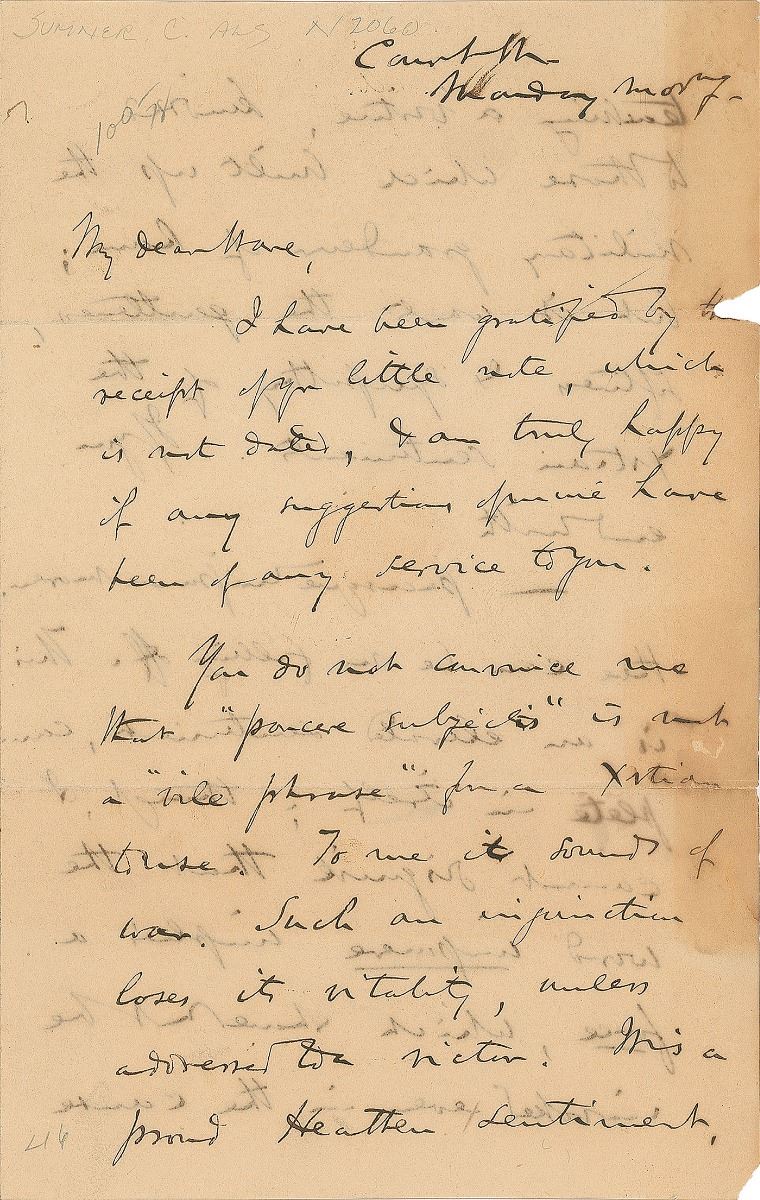 SUMNER C. ALS N2060
Court St.
Monday morng.
My dear Ware,
I have been gratified by the
receipt of yr little note, which
is not dated, & am truly happy
if any suggestions of mine have
been of any service to you.
You do not convince me
that "parcere subjectis" is not
a "vile phrase" for a Xstian
to use. To me it sounds of
war. Such an injunction
loses its vitality, unless
addressed to a victor. It is a
proud Heathen sentiment,